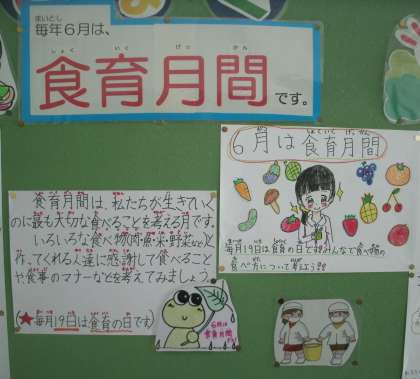 毎年6月は、
食育月間です。
食育月間は、私たちが生きていく
のに最も大切な食べることを考える月です。
いろいろな食べ物(肉・魚・米・野菜など)と
作ってくれる人達に感謝して食べること
や食事のマナーなどを考えてみましょう。
(★毎月19日は食育の日です)
6月は食育月間
毎月19日は食育の日で
食べ方について考えよう
6月は
食育月間